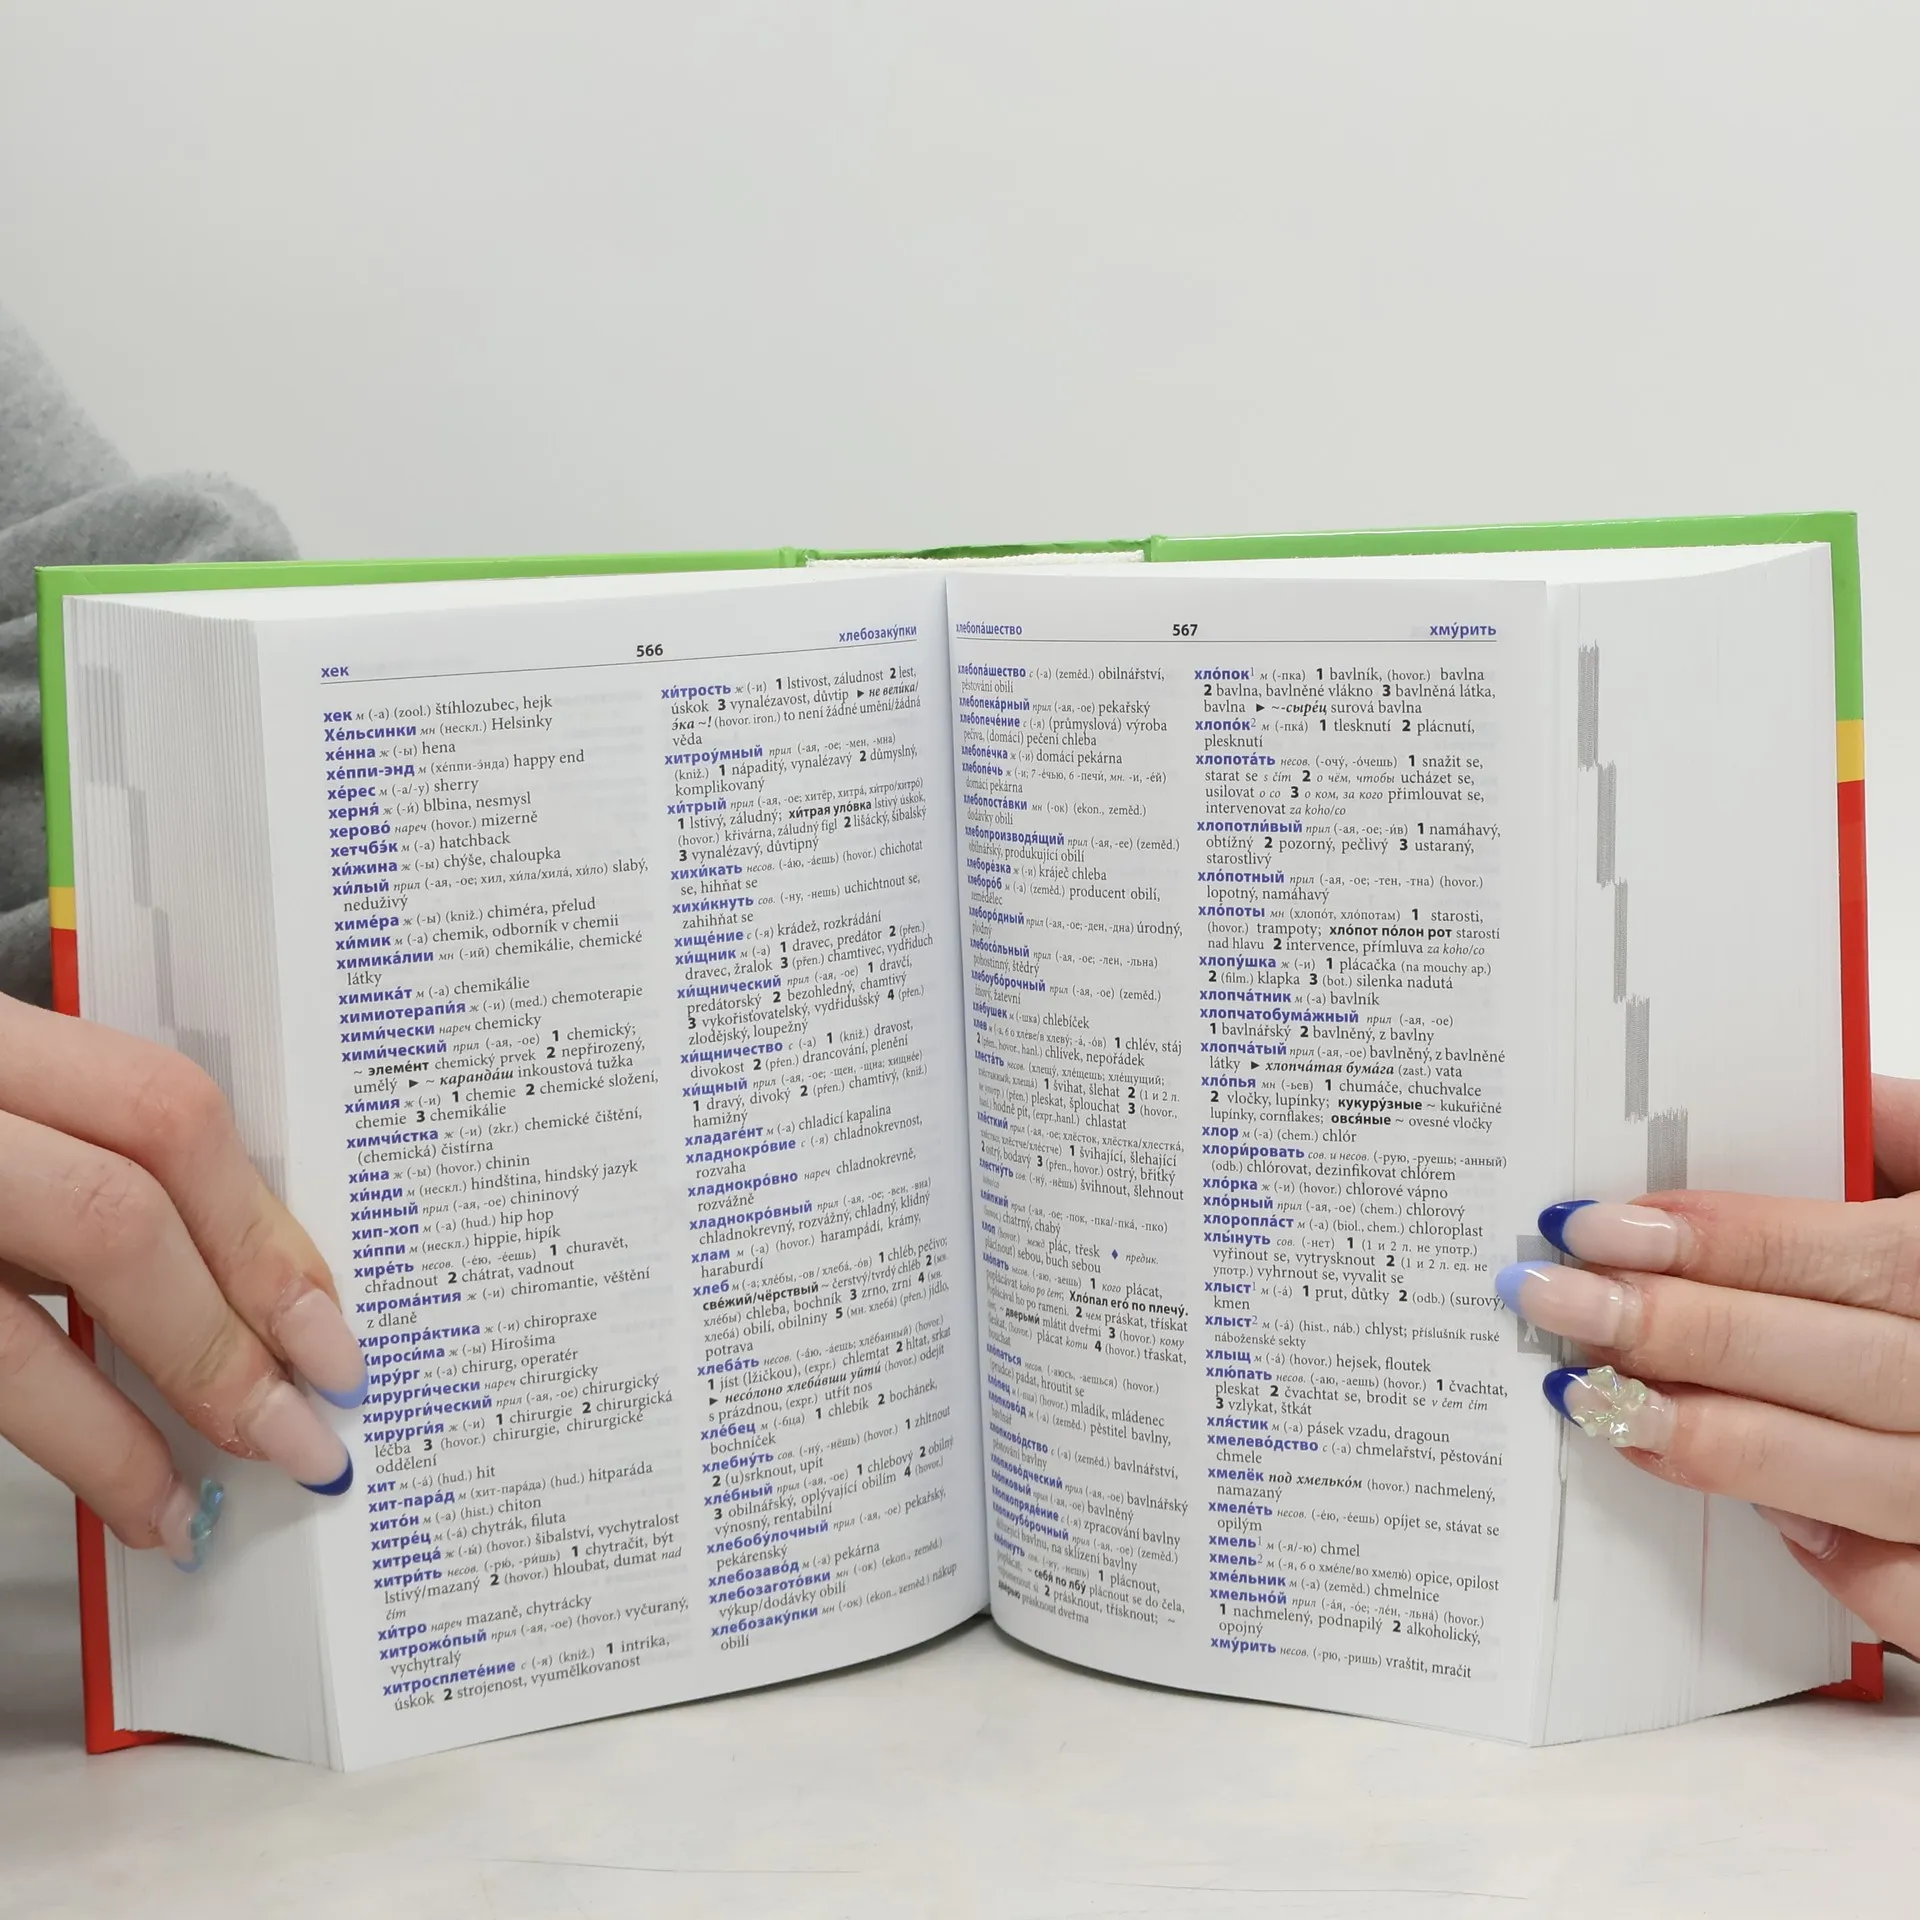 хек
566
хлебозаку́пки
хек м (-а) (zool.) štíhlozubec, hejk
Хе́льсинки мн (нескл.) Helsinky
хе́нна ж (-ы) hena
хе́ппи-энд м (хе́ппи-э́нда) happy end
хе́рес м (-а/-у) sherry
херня́ ж (-и́) blbina, nesmysl
херово́ нареч (hovor.) mizerně
хетчбэ́к м (-а) hatchback
хи́жина ж (-ы) chýše, chaloupka
хи́лый прил (-ая, -ое; хил, хи́ла/хила́, хи́ло) slabý,
neduživý
химе́ра ж (-ы) (kniž.) chiméra, přelud
хи́мик м (-а) chemik, odborník v chemii
химика́лии мн (-ий) chemikálie, chemické
látky
химика́т м (-а) chemikálie
химиотерапи́я ж (-и) (med.) chemoterapie
хими́чески нареч chemicky
хими́ческий прил (-ая, -ое) 1 chemický;
~ элеме́нт chemický prvek 2 nepřirozený,
umělý ► ~ каранда́ш inkoustová tužka
хи́мия ж (-и) 1 chemie 2 chemické složení,
chemie 3 chemikálie
химчи́стка ж (-и) (zkr.) chemické čištění,
(chemická) čistírna
хи́на ж (-ы) (hovor.) chinin
хи́нди м (нескл.) hindština, hindský jazyk
хи́нный прил (-ая, -ое) chininový
хип-хоп м (-а) (hud.) hip hop
хи́ппи м (нескл.) hippie, hipík
хире́ть несов. (-е́ю, -е́ешь) 1 churavět,
chřadnout 2 chátrat, vadnout
хирома́нтия ж (-и) chiromantie, věštění
z dlaně
хиропра́ктика ж (-и) chiropraxe
Хироси́ма ж (-ы) Hirošima
хиру́рг м (-а) chirurg, operatér
хирурги́чески нареч chirurgicky
хирурги́ческий прил (-ая, -ое) chirurgický
хирурги́я ж (-и) 1 chirurgie 2 chirurgická
léčba 3 (hovor.) chirurgie, chirurgické
oddělení
хит м (-а́) (hud.) hit
хит-пара́д м (хит-пара́да) (hud.) hitparáda
хито́н м (-а) (hist.) chiton
хитре́ц м (-а́) chytrák, filuta
хитреца́ ж (-ы́) (hovor.) šibalství, vychytralost
хитри́ть несов. (-рю́, -ри́шь) 1 chytračit, být
lstivý/mazaný 2 (hovor.) hloubat, dumat nad
čím
хи́тро нареч mazaně, chytrácky
хитрожо́пый прил (-ая, -ое) (hovor.) vyčuraný,
vychytralý
хитросплете́ние с (-я) (kniž.) 1 intrika,
úskok 2 strojenost, vyumělkovanost
хи́трость ж (-и) 1 lstivost, záludnost 2 lest,
úskok 3 vynalézavost, důvtip ► не вели́ка/
э́ка ~! (hovor. iron.) to není žádné umění/žádná
věda
хитроу́мный прил (-ая, -ое; -мен, -мна)
(kniž.) 1 nápaditý, vynalézavý 2 důmyslný,
komplikovaný
хи́трый прил (-ая, -ое; хитёр, хитра́, хи́тро/хитро́)
1 lstivý, záludný; хи́трая уло́вка lstivý úskok,
(hovor.) křivárna, záludný figl 2 lišácký, šibalský
3 vynalézavý, důvtipný
хихи́кать несов. (-аю, -аешь) (hovor.) chichotat
se, hihňat se
хихи́кнуть сов. (-ну, -нешь) uchichtnout se,
zahihňat se
хище́ние с (-я) krádež, rozkrádání
хи́щник м (-а) 1 dravec, predátor 2 (přen.)
dravec, žralok 3 (přen.) chamtivec, vydřiduch
хи́щнический прил (-ая, -ое) 1 dravčí,
predátorský 2 bezohledný, chamtivý
3 vykořisťovatelský, vydřidušský 4 (přen.)
zlodějský, loupežný
хи́щничество с (-а) 1 (kniž.) dravost,
divokost 2 (přen.) drancování, plenění
хи́щный прил (-ая, -ое; -щен, -щна; хищне́е)
1 dravý, divoký 2 (přen.) chamtivý, (kniž.)
hamižný
хладаге́нт м (-а) chladicí kapalina
хладнокро́вие с (-я) chladnokrevnost,
rozvaha
хладнокро́вно нареч chladnokrevně,
rozvážně
хладнокро́вный прил (-ая, -ое; -вен, -вна)
chladnokrevný, rozvážný, chladný, klidný
хлам м (-а) (hovor.) harampádí, krámy,
haraburdí
хлеб м (-а; хле́бы, -ов / хлеба́, -о́в) 1 chléb, pečivo;
све́жий/чёрствый ~ čerstvý/tvrdý chléb 2 (мн.
хле́бы) chleba, bochník 3 zrno, zrní 4 (мн.
хлеба́) obilí, obilniny 5 (мн. хлеба́) (přen.) jídlo,
potrava
хлеба́ть несов. (-а́ю, -а́ешь; хлёбанный) (hovor.)
1 jíst (lžičkou), (expr.) chlemtat 2 hltat, srkat
► несо́лоно хлеба́вши уйти́ (hovor.) odejít
s prázdnou, (expr.) utřít nos
хле́бец м (-бца) 1 chlebík 2 bochánek,
bochníček
хлебну́ть сов. (-ну́, -нёшь) (hovor.) 1 zhltnout
2 (u)srknout, upít
хле́бный прил (-ая, -ое) 1 chlebový 2 obilný
3 obilnářský, oplývající obilím 4 (hovor.)
výnosný, rentabilní
хлебобу́лочный прил (-ая, -ое) pekařský,
pekárenský
хлебозаво́д м (-а) pekárna
хлебозагото́вки мн (-ок) (ekon., zeměd.)
výkup/dodávky obilí
хлебозаку́пки мн (-ок) (ekon., zeměd.) nákup
obilí
хлебопа́шество
567
хму́рить
хлебопа́шество с (-а) (zeměd.) obilnářství,
pěstování obilí
хлебопека́рный прил (-ая, -ое) pekařský
хлебопече́ние с (-я) (průmyslová) výroba
pečiva, (domácí) pečení chleba
хлебопе́чка ж (-и) domácí pekárna
хлебопе́чь ж (-и; 7 -е́чью, 6 -печи́, мн. -и, -е́й)
domácí pekárna
хлебопоста́вки мн (-ок) (ekon., zeměd.)
dodávky obilí
хлебопроизводя́щий прил (-ая, -ее) (zeměd.)
obilnářský, produkující obilí
хлеборе́зка ж (-и) kráječ chleba
хлеборо́б м (-а) (zeměd.) producent obilí,
zemědělec
хлеборо́дный прил (-ая, -ое; -ден, -дна) úrodný,
plodný
хлебосо́льный прил (-ая, -ое; -лен, -льна)
pohostinný, štědrý
хлебоубо́рочный прил (-ая, -ое) (zeměd.)
žňový, žatevní
хле́бушек м (-шка) chlebíček
хлев м (-а, 6 о хле́ве/в хлеву́; -а́, -о́в) 1 chlév, stáj
2 (přen., hovor., hanl.) chlívek, nepořádek
хлеста́ть несов. (хлещу́, хле́щешь; хле́щущий;
1 švihat, šlehat 2 (1 и 2 л.
не употр.) (přen.) pleskat, šplouchat 3 (hovor.,
hanl.) hodně pít, (expr., hanl.) chlastat
хлёсткий прил (-ая, -ое; хлёсток, хлёстка/хлестка́,
1 švihající, šlehající
2 ostrý, bodavý 3 (přen., hovor.) ostrý, břitký
хлестну́ть сов. (-ну́, -нёшь) švihnout, šlehnout
хли́пкий прил (-ая, -ое; -пок, -пка/-пка́, -пко)
(hovor.) chatrný, chabý
хлоп (hovor.) межд plác, třesk ♦ предик.
(plácnout) sebou, buch sebou
хло́пать несов. (-аю, -аешь) 1 кого plácat,
poplácávat koho po čem; Хло́пал его́ по плечу́.
Poplácal ho po rameni. 2 чем práskat, třískat
čím; ~ дверьми́ mlátit dveřmi 3 (hovor.) кому
tleskat, (hovor.) plácat komu 4 (hovor.) třaskat,
bouchat
хло́паться несов. (-аюсь, -аешься) (hovor.)
(prudce) padat, hroutit se
хло́пец м (-пца) (hovor.) mladík, mládenec
хлопково́д м (-а) (zeměd.) pěstitel bavlny,
bavlnář
хлопково́дство с (-а) (zeměd.) bavlnářství,
pěstování bavlny
хлопково́дческий прил (-ая, -ое) bavlnářský
хло́пковый прил (-ая, -ое) bavlněný
хлопкопряде́ние с (-я) zpracování bavlny
хлопкоубо́рочный прил (-ая, -ое) (zeměd.)
sklízející bavlnu, na sklízení bavlny
хло́пнуть сов. (-ну, -нешь) 1 plácnout,
poplácat; ~ себя́ по лбу́ plácnout se do čela,
vzpomenout si 2 prásknout, třísknout; ~
две́рью prásknout dveřma
хло́пок¹ м (-пка) 1 bavlník, (hovor.) bavlna
2 bavlna, bavlněné vlákno 3 bavlněná látka,
bavlna ► ~-сыре́ц surová bavlna
хлопо́к² м (-пка́) 1 tlesknutí 2 plácnutí,
plesknutí
хлопота́ть несов. (-очу́, -о́чешь) 1 snažit se,
starat se s čím 2 о чём, чтобы ucházet se,
usilovat o co 3 о ком, за кого přimlouvat se,
intervenovat za koho/co
хлопотли́вый прил (-ая, -ое; -и́в) 1 namáhavý,
obtížný 2 pozorný, pečlivý 3 ustaraný,
starostlivý
хло́потный прил (-ая, -ое; -тен, -тна) (hovor.)
lopotný, namáhavý
хло́поты мн (хлопо́т, хло́потам) 1 starosti,
(hovor.) trampoty; хлопо́т по́лон рот starostí
nad hlavu 2 intervence, přímluva za koho/co
хлопу́шка ж (-и) 1 plácačka (na mouchy ap.)
2 (film.) klapka 3 (bot.) silenka nadutá
хлопча́тник м (-а) bavlník
хлопчатобума́жный прил (-ая, -ое)
1 bavlnářský 2 bavlněný, z bavlny
хлопча́тый прил (-ая, -ое) bavlněný, z bavlněné
látky ► хлопча́тая бума́га (zast.) vata
хло́пья мн (-ьев) 1 chumáče, chuchvalce
2 vločky, lupínky; кукуру́зные ~ kukuřičné
lupínky, cornflakes; овся́ные ~ ovesné vločky
хлор м (-а) (chem.) chlór
хлори́ровать сов. и несов. (-рую, -руешь; -анный)
(odb.) chlórovat, dezinfikovat chlórem
хло́рка ж (-и) (hovor.) chlorové vápno
хло́рный прил (-ая, -ое) (chem.) chlórový
хлоропла́ст м (-а) (biol., chem.) chloroplast
хлы́нуть сов. (-нет) 1 (1 и 2 л. не употр.)
vyřinout se, vytrysknout 2 (1 и 2 л. ед. не
употр.) vyhrnout se, vyvalit se
хлыст¹ м (-а́) 1 prut, důtky 2 (odb.) (surový)
kmen
хлыст² м (-а́) (hist., náb.) chlyst; příslušník ruské
náboženské sekty
хлыщ м (-а́) (hovor.) hejsek, floutek
хлю́пать несов. (-аю, -аешь) (hovor.) 1 čvachtat,
pleskat 2 čvachtat se, brodit se v čem čím
3 vzlykat, štkát
хля́стик м (-а) pásek vzadu, dragoun
хмелево́дство с (-а) chmelařství, pěstování
chmele
хмелёк под хмелько́м (hovor.) nachmelený,
namazaný
хмеле́ть несов. (-е́ю, -е́ешь) opíjet se, stávat se
opilým
хмель¹ м (-я/-ю) chmel
хмель² м (-я, 6 о хме́ле/во хмелю́) opice, opilost
хме́льник м (-а) (zeměd.) chmelnice
хмельно́й прил (-а́я, -о́е; -лён, -льна́) (hovor.)
1 nachmelený, podnapilý 2 alkoholický,
opojný
хму́рить несов. (-рю, -ришь) vraštit, mračit
Х